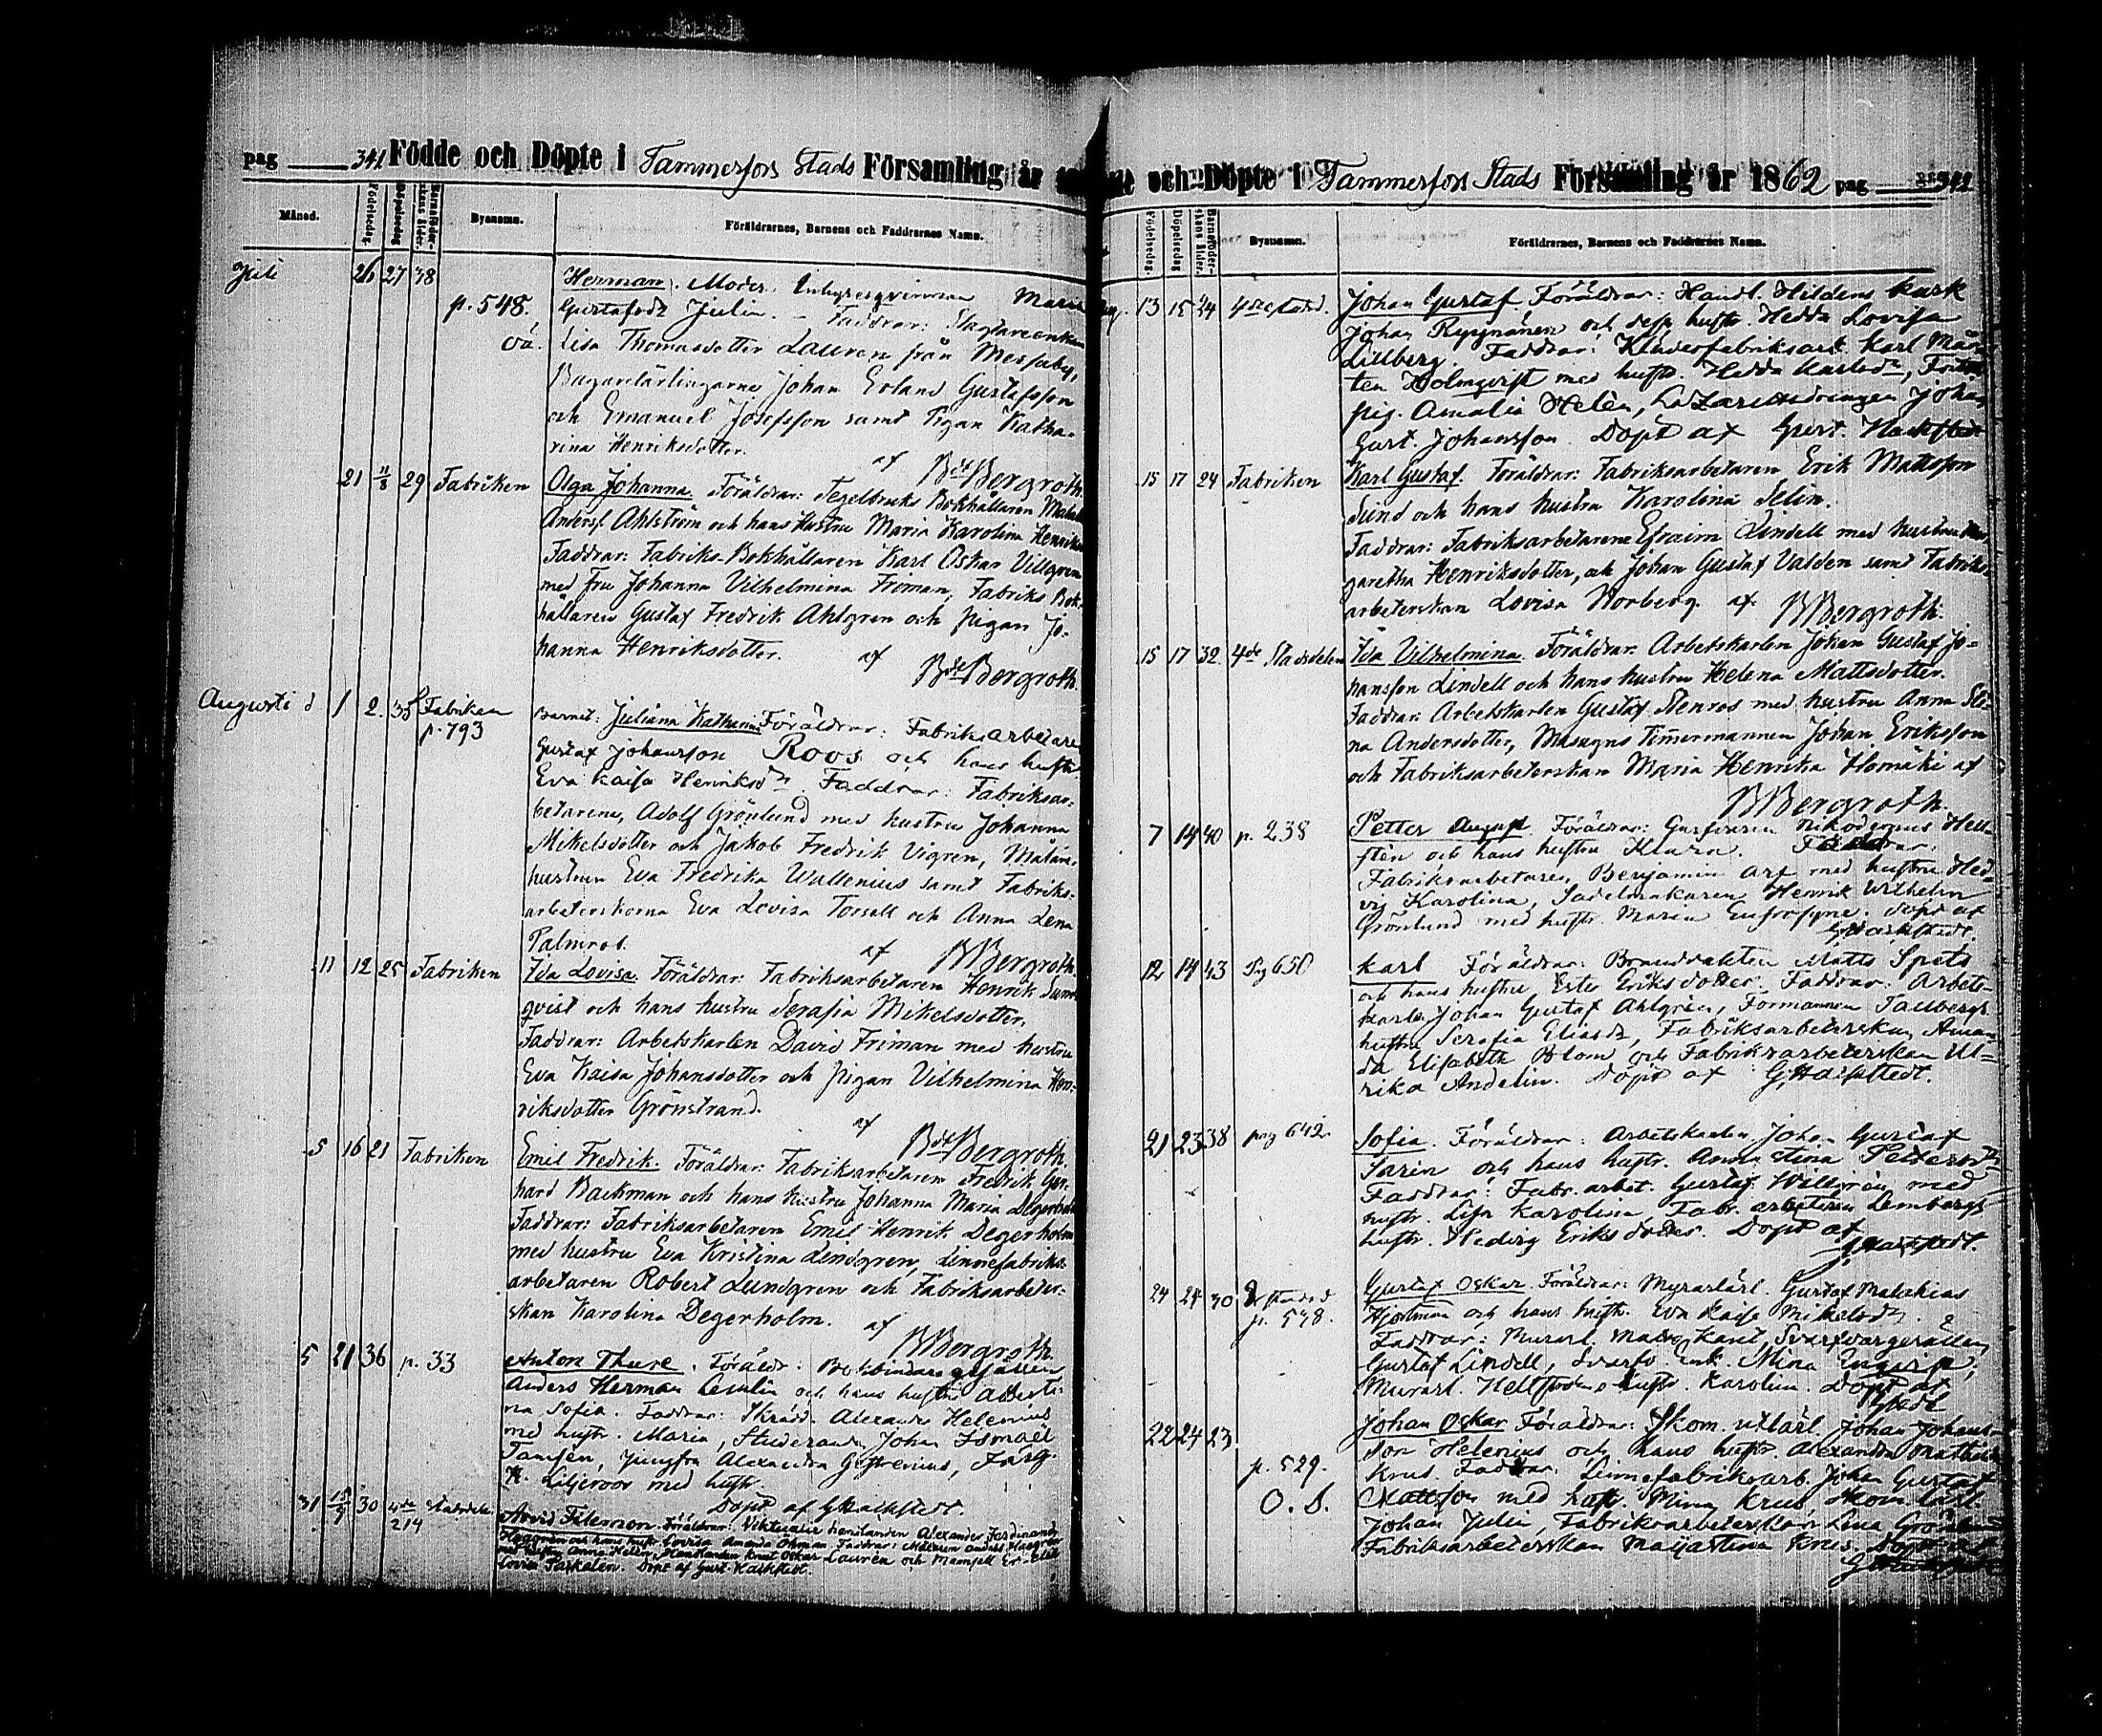 pag 341 Födde och Döpte i Tammerfors Stads Församling år
Månad. Födelsedag. Döpelsedag Barnaföderskans ålder. Bynamn. Föräldrarnes, Barnens och Faddrarnes Namn.
Juli 26 27 38 Herman. Moder: Inhysesqvinnan Maria
p. 548. Gustafsdr Julin. – Faddrar: Slagtareenkan
oä. Lisa Thomasdotter Lauren från Messuby,
Bagarelärlingarne Johan Erland Gustafsson
och Emanuel Josefsson samt Pigan Katha-
rina Henriksdotter. af Bdt Bergroth.
21 11/8 29 Fabriken Olga Johanna. Föräldrar: Tegelbruks Bokhållaren
Andersf Ahlström och hans Hustru Maria Karolina
Faddrar: Fabriks-Bokhållaren Karl Oskar Villgren
med Fru Johanna Vilhelmina Froman, Fabriks Bok-
hållaren Gustaf Fredrik Ahlgren och pigan Jo-
hanna Henriksdotter. af Bdt Bergroth.
Augusti d 1 2. 35 Fabriken Barnet: Juliana Katharina Föräldrar: Fabriksarbetare
p. 793 Gustaf Johansson Roos och hans hustr
Eva Kaisa Henriksdr. Faddrar: Fabriksar-
betarene, Adolf Grönlund med hustru Johanna
Mikelsdotter och Jakob Fredrik Vigren, Målare-
hustrun Eva Fredrika Wallenius samt Fabriks-
arbeterskorna Eva Lovisa Torsell och Anna Lena
Palmros. af BBergroth.
11 12 25 Fabriken Ida Lovisa. Föräldrar: Fabriksarbetaren Henrik
qvist och hans hustru Serafia Mikelsdotter.
Faddrar: Arbetskarlen David Friman med hustru
Eva Kaisa Johansdotter och pigan Vilhelmina Hen-
riksdotter Grönstrand. af Bdt Bergroth.
5 16 21 Fabriken Emil Fredrik. Föräldrar: Fabriksarbetaren Fredrik Ger-
hard Backman och hans hustru Johanna Maria Degerholm
Faddrar: Fabriksarbetaren Emil Henrik Degerholm
med hustru Eva Kristina Lindgren, Linnefabriks-
arbetaren Robert Lundgren och Fabriksarbeter-
skan Karolina Degerholm. af BBergroth
5 21 36 p. 33 Anton Thure. Föräldr: Bokbindare gesällen
Anders Herman och hans hustru Alberti-
na Sofia. Faddrar: Skrädd. Alexander Helenius
med hustr. Maria, Studeranden Johan Ismael
Tamlén, Jungfru Alexandra Färg.
Liljeroos med hustr.
Döpt af GHackstedt.
31 15/9 30 4de Stadsdelen Arvid Filemon. Föräldrar: Viktualie handlanden Alexander Ferdinand
214 och hans hustr Lovisa Amanda Öhman Faddrar: Målaren Anders Haagrén
med hustru Anna Helena, Handlanden Knut Oskar Laurén och Mamsell
Lovisa Döpt af Gust. Hackstedt.
och Döpte i Tammerfors Stads Församling år 1862 pag 342
Födelsedag. Döpelsedag Barnaföderskans ålder. Bynamn. Föräldrarnes, Barnens och Faddrarnes Namn.
Aug. 13 15 24 4de stadsd. Johan Gustaf. Föräldrar: Handl. Hildens kusk
Johan Ryynänen och dess hustr. Hedda Lovisa
Lillberg. Faddrar: Klädesfabriksarb. Karl Mår-
ten Holmqvist med hustr. Hedda Karlsdr,
pig. Amalia Helén, Johan
Gust. Johansson. Döpt af Gust. Hackstedt
15 17 24 Fabriken Karl Gustaf. Föräldrar: Fabriksarbetaren Erik Mattsson
Sund och hans hustru Karolina Selin.
Faddrar: Fabriksarbetarene Efraim Lindell med hustru Mar-
garetha Henriksdotter, och Johan Gustaf Valden samt Fabriks-
arbeterskan Lovisa Norberg. af BBergroth.
15 17 32 4de Stadsdelen Ida Vilhelmina. Föräldrar: Arbetskarlen Johan Gustaf Jo-
hansson Lindell och hans hustru Helena Mattsdotter.
Faddrar: Arbetskarlen Gustaf Stenros med hustru Anna Ste-
na Andersdotter, Masugns Timmermannen Johan Eriksson
och Fabriksarbeterskan Maria Henrika Ilomäki af
BBergroth.
7 14 40 p. 238 Petter August. Föräldrar: Garfvaren Nikodemus Hell-
stén och hans hustru Klara. Faddrar:
Fabriksarbetaren Benjamin Arf med hustru Hed-
vig Karolina, Sadelmakaren Henrik Wilhelm
Grönlund med hustr. Maria Eufrosyne. Döpt af
GHackstedt.
12 14 43 Pag 650 Karl Föräldrar: Brandvakten Matts Spets
och hans hustru Ester Eriksdotter. Faddrar: Arbets-
karln Johan Gustaf Ahlgrén, Formannen Tallbergs
hustru Serafia Eliasdr, Fabriksarbeterskan Aman-
da Elisabeth Blom och Fabriksarbeterskan Ul-
rika Andelin. Döpt af GHackstedt.
21 23 38 pag 642. Sofia. Föräldrar: Arbetskarlen Johan Gustaf
Sarin och hans hustr. Anna Stina Pettersdr
Faddrar: Fabr. arbet. Gustaf Willgren med
hustr. Lisa Karolina Fabr. arbetaren Lembergs
hustr. Hedvig Eriksdotter. Döpt af
GHackstedt.
24 24 30 stadsd Gustaf Oskar. Föräldrar: Murarlärl. Gustaf Malakias
p. 578. Hjortman och hans hustr. Eva Kaisa Mikelsdr.
Faddrar: Murarl. Matts Svarfvargesällen
Gustaf Lindell, Svarfv. enk. Mina
Murarl. Hellstedts hustr. Karolin. Döpt af
22 24 23 Johan Oskar Föräldrar: Skom. utlärl. Johan Johans-
son Helenius och hans hustr. Alexandra Mathilda
p. 529. Krus. Faddrar: Linnefabriksarb. Johan Gustaf
O. S. Mattsson med hustr. Mina Krus, Skom. lärl.
Johan Julin, Fabriksarbeterskan Lena
Fabriksarbeterskan Maja Stina Krus. Döpt af